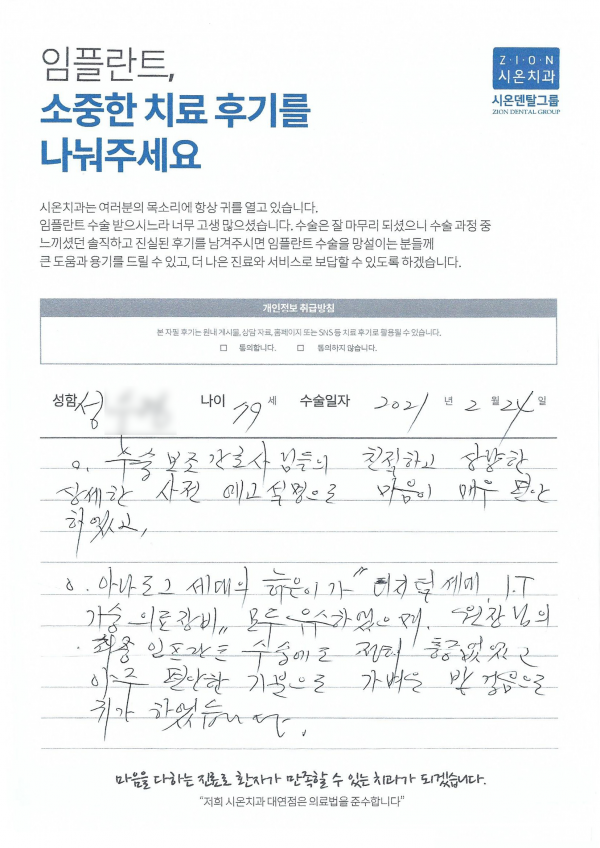 임플란트,
소중한 치료 후기를
나눠주세요
Z·I·O·N
시온치과
시온덴탈그룹
ZION DENTAL GROUP
시온치과는 여러분의 목소리에 항상 귀를 열고 있습니다.
임플란트 수술 받으시느라 너무 고생 많으셨습니다. 수술은 잘 마무리 되셨으니 수술 과정 중
느끼셨던 솔직하고 진실된 후기를 남겨주시면 임플란트 수술을 망설이는 분들께
큰 도움과 용기를 드릴 수 있고, 더 나은 진료와 서비스로 보답할 수 있도록 하겠습니다.
개인정보 취급방침
본 자필 후기는 원내 게시물, 상담 자료, 홈페이지 또는 SNS 등 치료 후기로 활용될 수 있습니다.
□ 동의합니다. □ 동의하지 않습니다.
성함 성 나이 79 세 수술일자 2021 년 2 월 24 일
o. 수술 보조 간호사님들의 친절하고 상냥한
상세한 사전 예고 설명으로 마음이 매우 편안
하였고,
o. 아나로그 세대의 늙은이가 "디지털세대, I.T
기술 의료장비" 모두 우수하였으며, 원장님의
최종 임프란트 수술에도 전혀 통증없었고
아주 편안한 기분으로 가벼운 발걸음으로
귀가 하였습니다.
마음을 다하는 진료로 환자가 만족할 수 있는 치과가 되겠습니다.
"저희 시온치과 대연점은 의료법을 준수합니다"